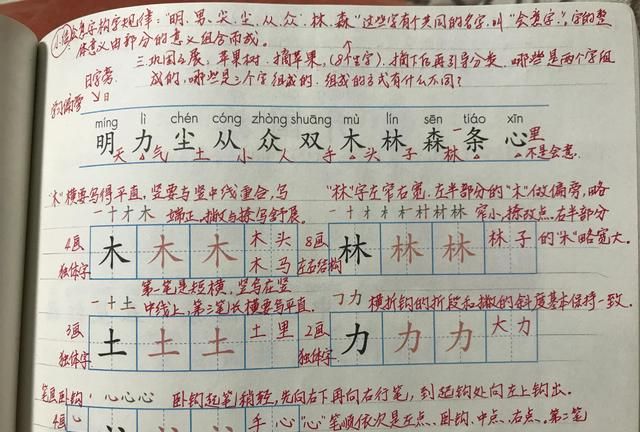 小结会意字构字规律:“明、男、尖、尘、从、众、林、森”这些字有个共同的名字,叫“会意字”,字的整
体意义由部分的意义组合而成。
三.巩固拓展:苹果树.摘苹果,(8个生字).摘下后再引导分类.哪些是两个字组
日字旁 成的,哪些是三个字组成的.组成的方式有什么不同?
学习偏旁
míng lì chén cóng zhòng shuāng mù lín sēn tiáo xīn
明 力 尘 从 众 双 木 林 森 条 心
天 气 土 小 人 手 头 子 林 里
不是会意.
“木”横要写得平直,竖要与竖中线重合,写 “林”字左窄右宽.左半部分的“木”做偏旁,略
一 十 才 木 端正.撇与捺写舒展. 一 十 才 木 木 村 材 林 窄小,捺改点.右半部分
4画 木 木 木 木头 8画 林 林 林 林子 的“木”略宽大.
独体字 木马 左右结构
第二笔是短横,竖写在竖
一 十 土 中线上,第三笔长横要写平直. ㇆ 力 横折钩的折段和撇的斜度基本保持一致.
3画 土 土 土 土里 2画 力 力 力 大力
独体字 独体字
笔画卧钩 心 心 心 卧钩起笔稍轻,先向右下再向右行笔,到起钩处向左上钩出.
4画 手心 “心”笔顺依次是左点、卧钩、中点、右点.第二笔